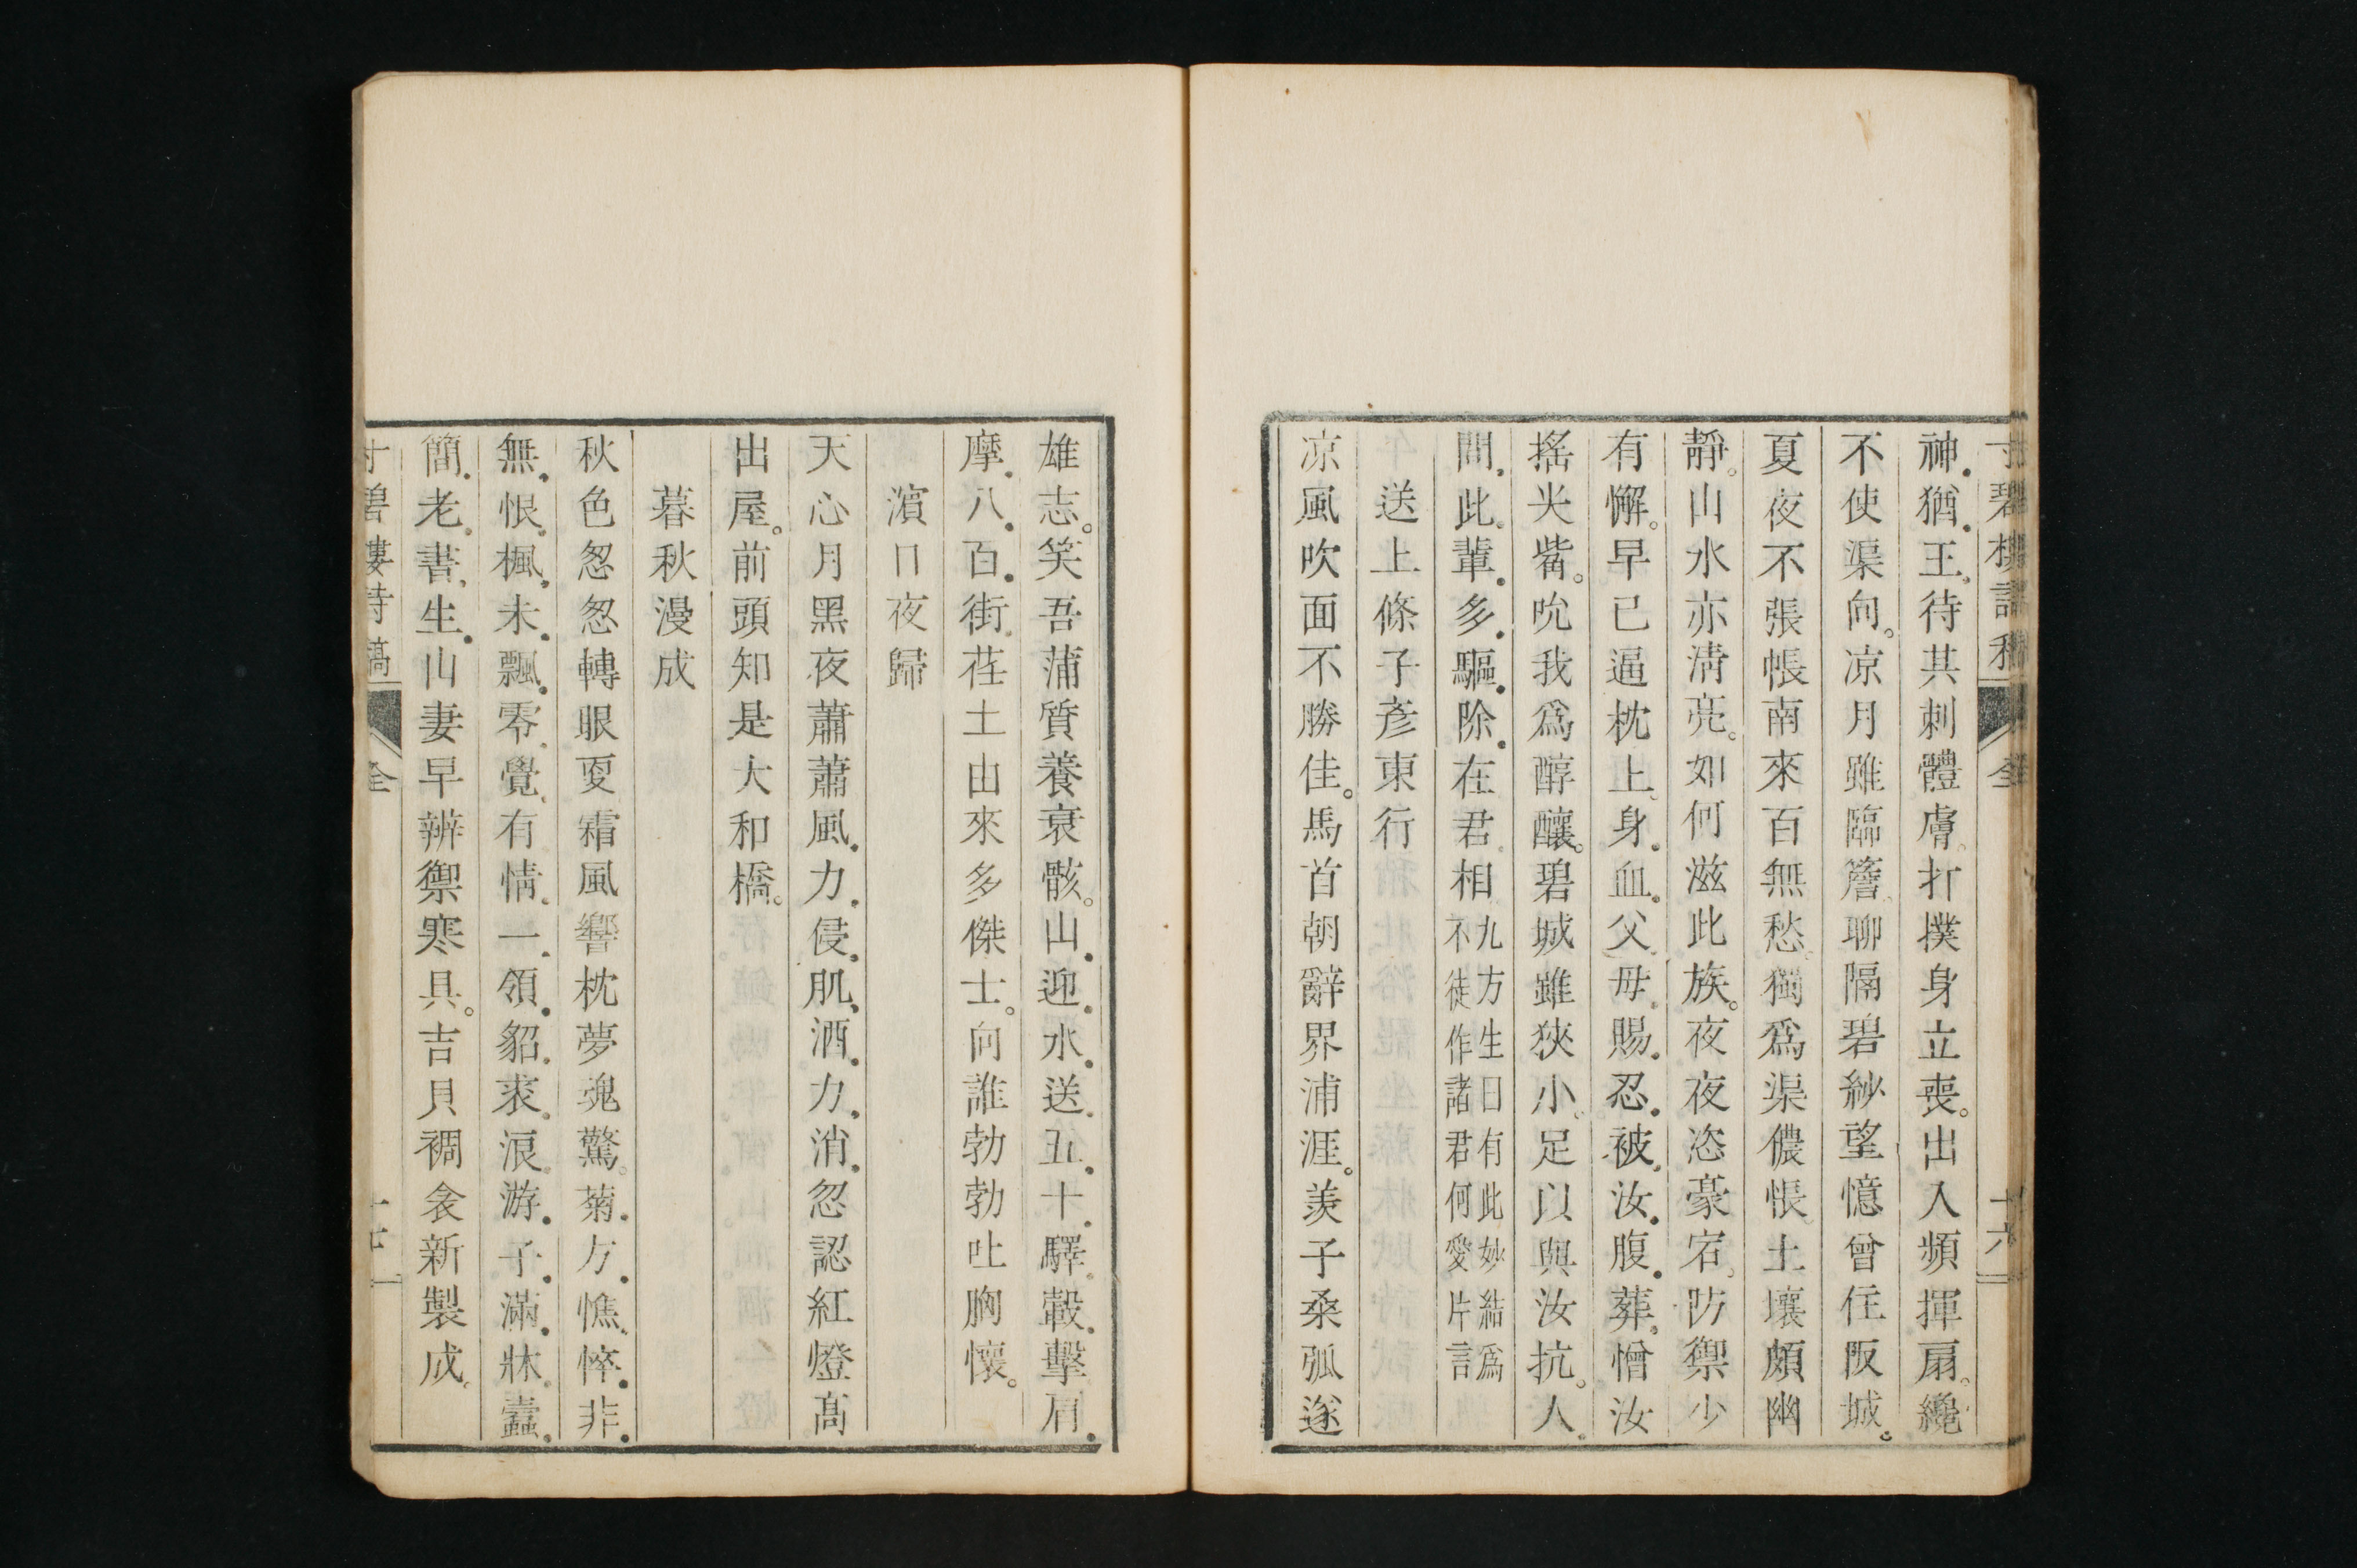 寸碧樓詩稿 全 十六
神猶王待其刺體膚打撲身立喪出入頻揮扇纔
不使渠向凉月雖臨簷聊隔碧紗望憶曾住阪城
夏夜不張帳南來百無愁獨爲渠儂悵土壤頗幽
靜山水亦淸亮如何滋此族夜夜恣豪宕防禦少
有懈早已逼枕上身血父母賜忍被汝腹葬憎汝
搖尖觜吮我爲醇釀碧城雖狹小足以與汝抗人
間此輩多驅除在君相九方生日有此妙結爲
不徒作諸君何愛片言
送上條子彥東行
凉風吹面不勝佳馬首朝辭界浦涯羨子桑弧遂
雄志笑吾蒲質養衰骸山迎水送五十驛轂擊肩
摩八百街荏土由來多傑士向誰勃勃吐胸懷
濱口夜歸
天心月黑夜蕭蕭風力侵肌酒力消忽認紅燈高
出屋前頭知是大和橋
暮秋漫成
秋色怱怱轉眼更霜風響枕夢魂驚菊方憔悴非
無恨楓未飄零覺有情一領貂裘浪游子滿牀蠹
簡老書生山妻早辨禦寒具吉貝裯衾新製成
寸碧樓詩稿 全 十七